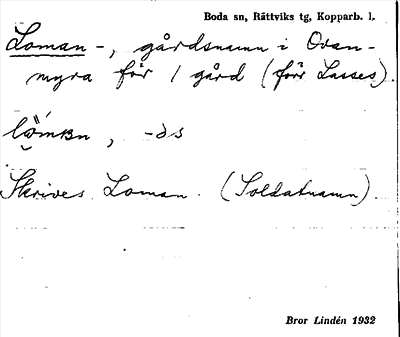 Boda sn, Rättviks tg, Kopparb. l.
Loman-, gårdsnamn i Ovan-
myra för 1 gård (förr Lasses).
, -ɔs
Skrives Loman. (Soldatnamn)
Bror Lindén 1932